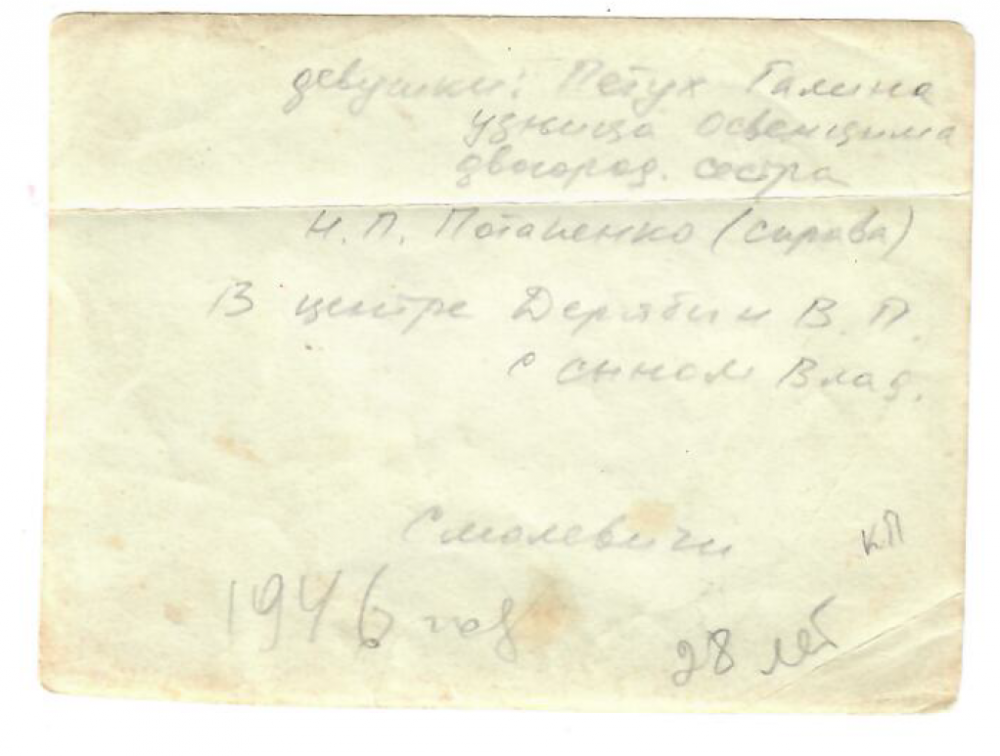 девушки: Петух Галина
узница Освенцима
двоюрод. сестра
Н.П. Потапенко (справа)
В центре Дерябин В.П.
с сыном Влад.
Смолевичи
К.П
1946 год
28 лет